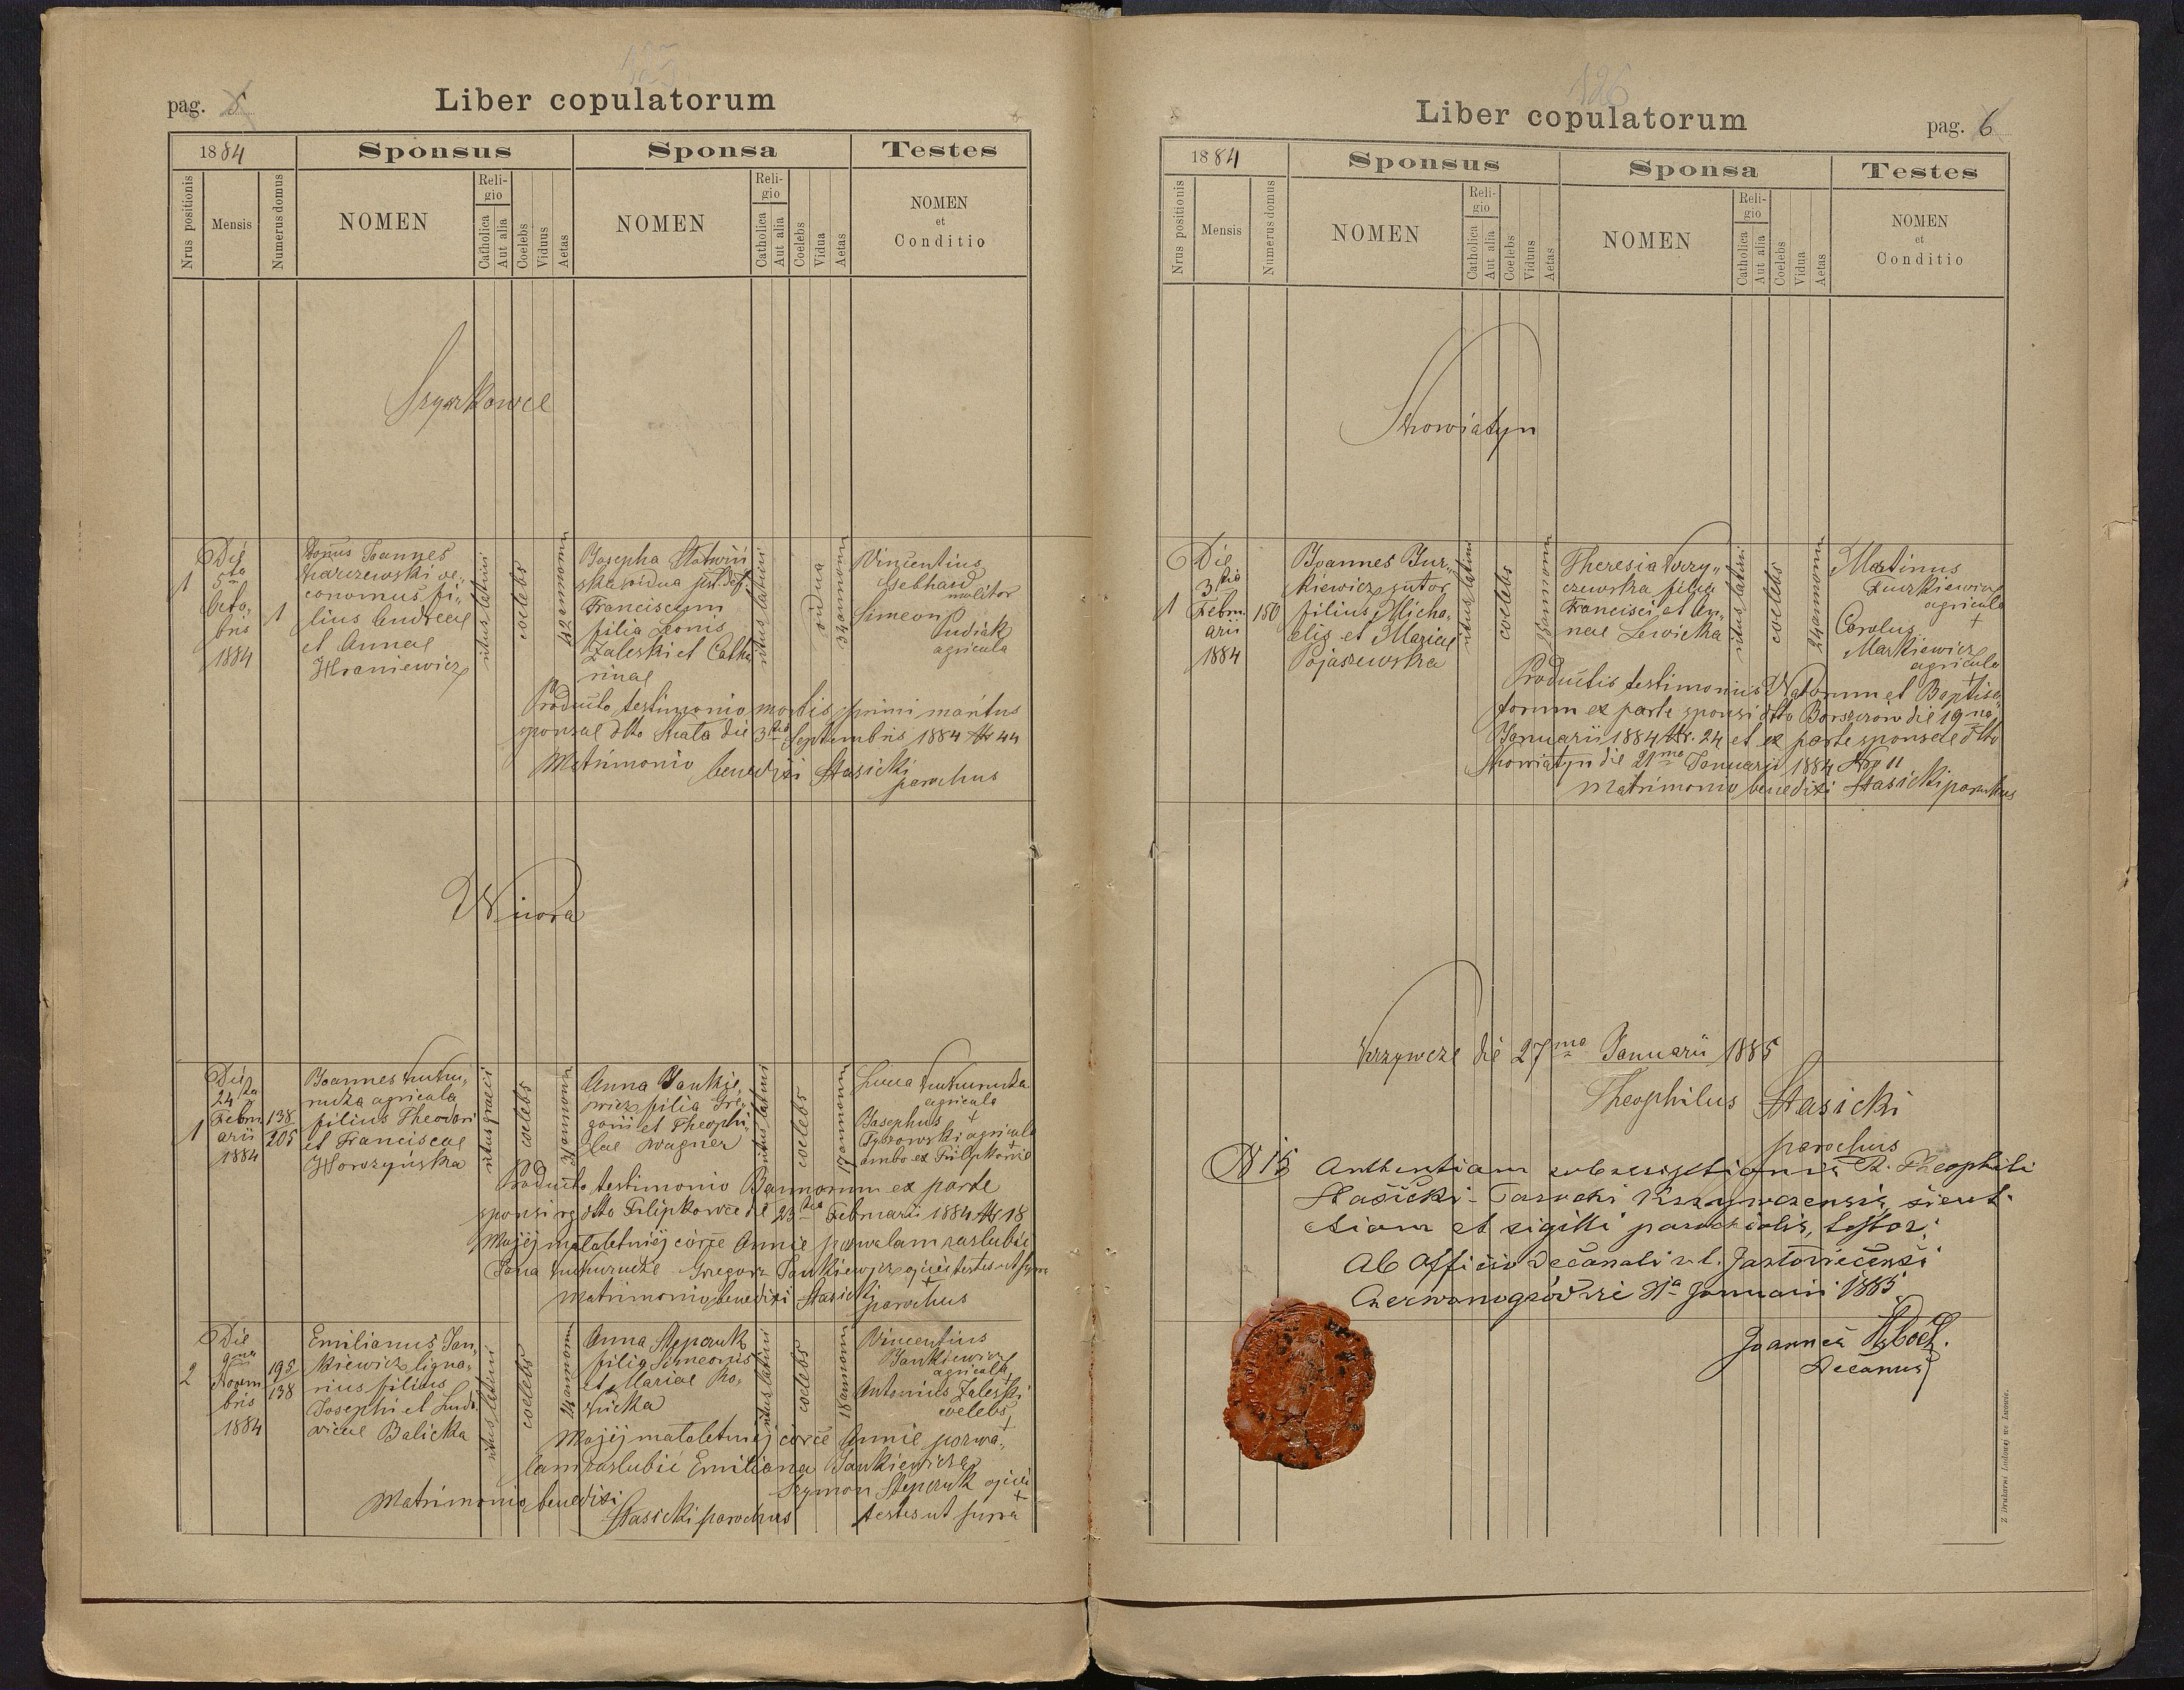 125
pag. 5
Liber copulatorum
1884
Sponsus
Sponsa
Testes
Nrus positionis
Mensis
Numerus domus
NOMEN
Reli-
gio
Catholica
Aut alia
Coelebs
Viduus
Aetas
NOMEN
Reli-
gio
Catholica
Aut alia
Coelebs
Vidua
Aetas
NOMEN
et
Conditio
Szyszkowce
1
Die
5ta
Octo„
bris
1884
1
Joannes
oe„
conomus fi„
lius Andreae
et Annae
Hraniewicz
ritus latini
coelebs
42 annorum
Josepha
vidua post def.
Franciscum
filia Leonis
Zaleski et Catha
rinae
ritus latini
vidua
34 annorum
Vincentius
Gebhard
molitor
Simeon
Pudiak
agricola
Producto testimonio mortis primi maritus
sponsae dtto Skala die 3tia Septembris 1884 Nr 44
Matrimonio benedixi Stasicki
parochus
Winora
1
Die
24ta
Febru
arii
1884
138
205
Joannes Kuku„
rudza agricola
filius Theodori
et Franciscae
Horszyńska
ritus graeci
coelebs
31 annorum
Anna Jankie„
wicz filia Gre„
gorii et Theophi„
lae Wagner
ritus latini
coelebs
17 annorum
Lucca Kukurudza
agricola
+
Josephus
Tyszowski agricola
+
ambo ex Filipkowce
Producto testimonio Bannorum ex parte
sponsi rg dtto Filipkowce die 23tia Februarii 1884 Nr 18
Mojej małoletniej córce Annie pozwalam zaślubić
Jana Kukurudzę Gregorz Jankiewicz ojciec testes ut supra
+
Matrimonio benedixi Stasicki
parochus
2
Die
9na
Novem
bris
1884
195
138
Emilianus Jan„
kiewicz ligna„
rius filius
Josephi et Ludo„
vicae Balicka
ritus latini
coelebs
24 annorum
Anna Stepczuk
filia Simeonis
et Mariae Ro„
zucka
ritus latini
coelebs
18 annorum
Vincentius
Jankiewicz
agricola
+
Antonius Zaleski
coelebs
+
Mojej małoletniej córce Annie pozwa„
lam zaślubić Emiliana Jankiewicza
Szymon Stepczuk ojciec
+
Matrimonio benedixi
Stasicki parochus
testes ut supra
126
Liber copulatorum
pag. 6
1884
Sponsus
Sponsa
Testes
Nrus positionis
Mensis
Numerus domus
NOMEN
Reli-
gio
Catholica
Aut alia
Coelebs
Viduus
Aetas
NOMEN
Reli-
gio
Catholica
Aut alia
Coelebs
Vidua
Aetas
NOMEN
et
Conditio
Skowiatyn
1
Die
3tia
Febru
arii
1884
150
Joannes Jur„
kiewicz sutor
filius Micha„
elis et Mariae
Pojaszewska
ritus latini
coelebs
annorum
Theresia
czewska filia
Francisci et An„
nae Lewicka
ritus latini
coelebs
24 annorum
Martinus
Jurkiewicz
agricola
+
Carolus
Markiewicz
agricola
+
Productis testimoniis Natorum et Baptisa„
torum ex parte sponsi dtto Borszczów die 19na
Januarii 1884 Nr. 24 et ex parte sponsae dtto
Skowiatyn die 21ma Januarii 1884 Nro 11
Matrimonio benedixi Stasicki parochus
Krzywcze die 27ma Januarii 1885
Theophilus Stasicki
parochus
N 15 Authentiam subscriptionis R. Theophili
Stasicki Parochi Krzywczensis, sicut
etiam et sigilli parochialis, testor.
Ab Officio decanali r. l. Jazłoviecensi
Czerwonogród die 31a Januarii 1885
Joannes
Decanus
Z Drukarni Ludowej we Lwowie.